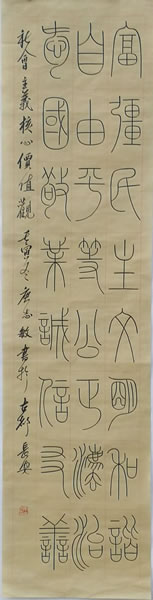 富彊民主文明和諧
自由平等公正灋治
愛國敬業誠信友善
社會主義核心價值觀 壬寅冬 志 書於古都長安